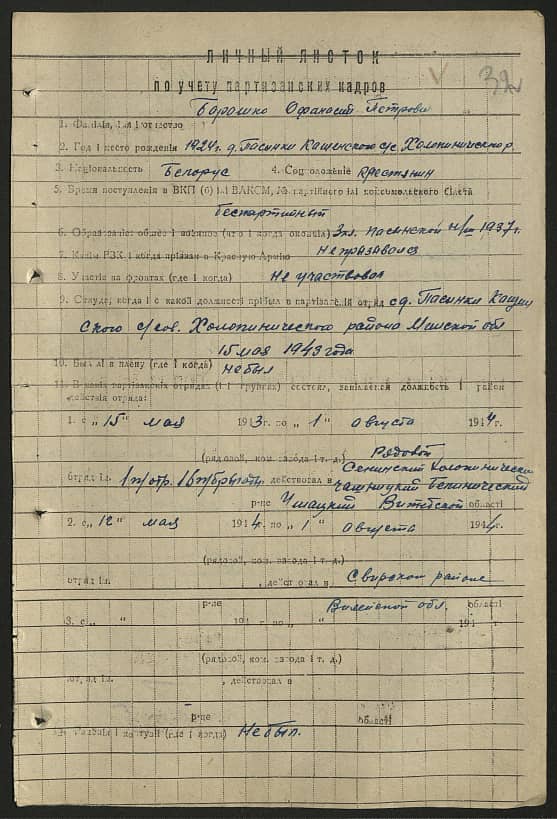 ЛИЧНЫЙ ЛИСТОК
по учету партизанских кадров
32
Барашко Афанасий Петрови
1. Фамилия, имя и отчество
2. Год и место рождения 1924 г. д. Пасынки Кащенского с/с Холопинического р
3. Национальность Белорус 4. Соцположение крестянин
5. Время поступления в ВКП (б) или ВЛКСМ, № партийного или комсомольского билета
беспартийный
6. Образование общее и военное (что и когда окончил) 3кл. пасынской н/ш 1937 г.
7. Каким РВК и когда призван в Красную Армию непризавался
8. Участие на фронтах (где и когда) Не участвовал
9. Откуда, когда и с какой должности прибыл в партизанский отряд с д. Пасынки Кащен
ского с/сов. Холопинического района Минской обл
15 мая 1943 года
10. Был ли в плену (где и когда) небыл
11. В каких партизанских отрядах (и группах) состоял, занимаемая должность и район
действия отряда:
1. с „ 15 " мая 1943 г. по „ 1 " августа 1944 г.
Рядовой
(рядовой, ком. взвода и т. д.)
Сенинский Холопинически
отряд им. 1 п/отр. 16 п/бригады, действовал в Чашницкий Бегинический
р-не Ушацкий Витебской области
2. с „ 12 " мая 1944 г. по „ 1 " августа 1944
(рядовой, ком. взвода и т. д.)
отряд им. , действовал в Свирском районе
р-не Вилейской обл. области
3. с „ " 194 г. по „ " 194 г.
(рядовой, ком. взвода и т. д.)
отряд им. , действовал в
р-не области
12. Ранения и контузии (где и когда) Не был.